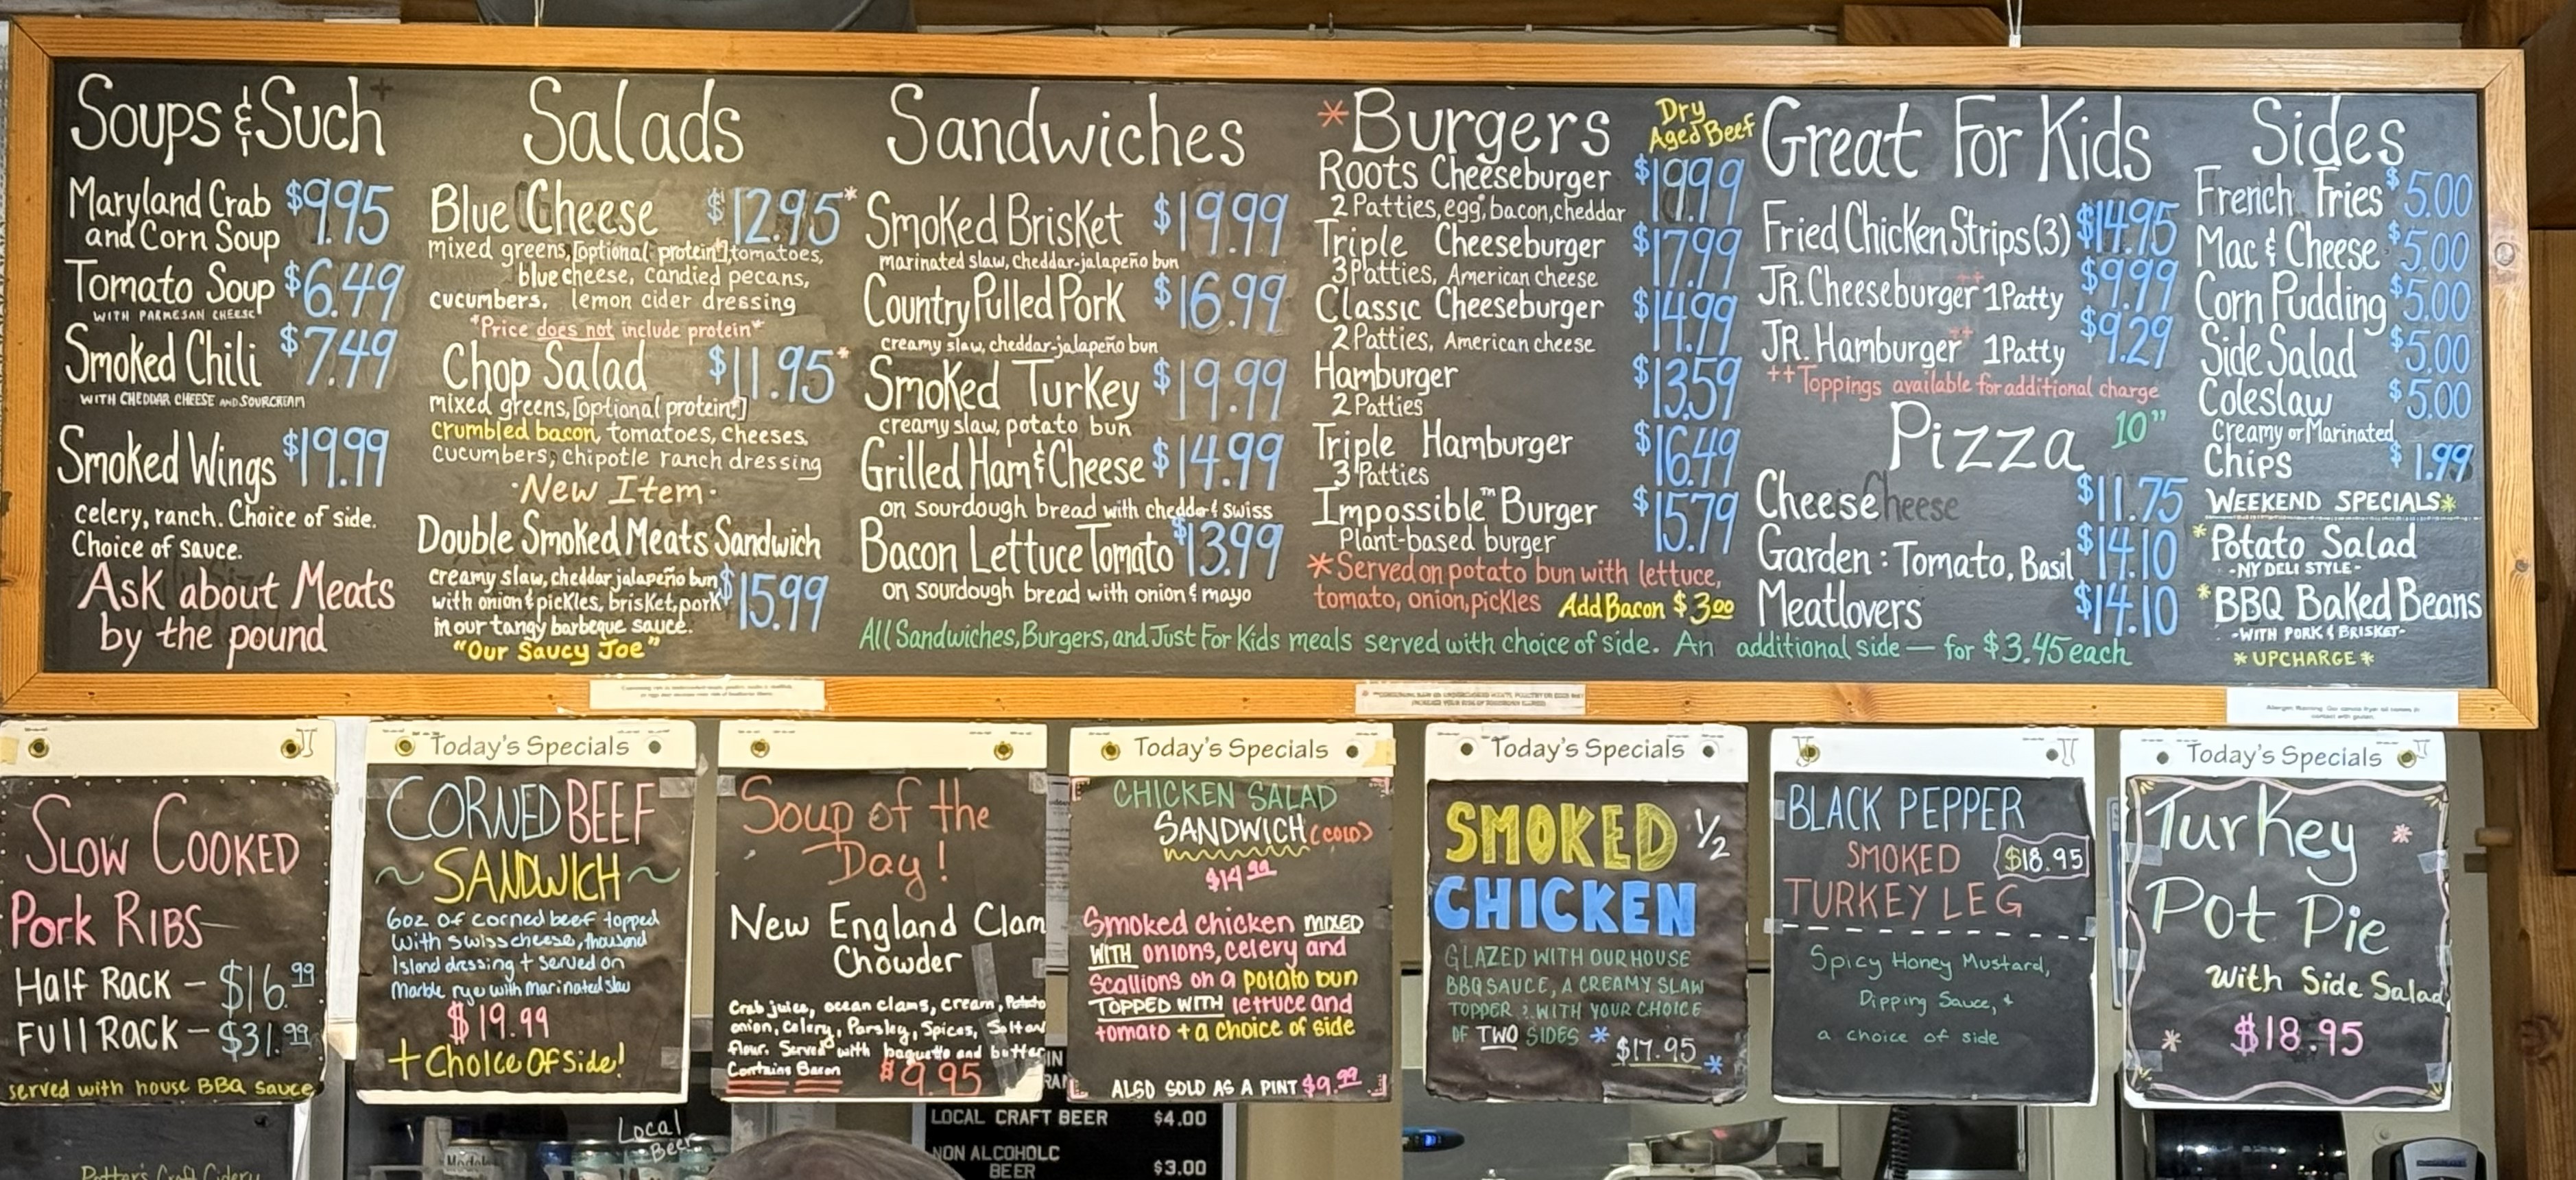 Soups & Such
Maryland Crab $9.95
and Corn Soup
Tomato Soup $6.49
WITH PARMESAN CHEESE
Smoked Chili $7.49
WITH CHEDDAR CHEESE AND SOURCREAM
Smoked Wings $19.99
celery, ranch. Choice of side.
Choice of sauce.
Ask about Meats
by the pound
Salads
Blue Cheese $12.95*
mixed greens, [optional protein*], tomatoes,
blue cheese, candied pecans,
cucumbers, lemon cider dressing
*Price does not include protein*
Chop Salad $11.95*
mixed greens, [optional protein*]
crumbled bacon, tomatoes, cheeses,
cucumbers, chipotle ranch dressing
·New Item·
Double Smoked Meats Sandwich
creamy slaw, cheddar jalapeño bun $15.99
with onion & pickles, brisket, pork
in our tangy barbeque sauce.
"Our Saucy Joe"
Sandwiches
Smoked Brisket $19.99
marinated slaw, cheddar-jalapeño bun
Country Pulled Pork $16.99
creamy slaw, cheddar-jalapeño bun
Smoked Turkey $19.99
creamy slaw, potato bun
Grilled Ham & Cheese $14.99
on sourdough bread with cheddar & swiss
Bacon Lettuce Tomato $13.99
on sourdough bread with onion & mayo
*Burgers Dry
Aged Beef
Roots Cheeseburger $19.99
2 Patties, egg, bacon, cheddar
Triple Cheeseburger $17.99
3 Patties, American cheese
Classic Cheeseburger $14.99
2 Patties, American cheese
Hamburger $13.59
2 Patties
Triple Hamburger $16.49
3 Patties
Impossible™ Burger $15.79
Plant-based burger
*Served on potato bun with lettuce,
tomato, onion, pickles Add Bacon $3.00
Great For Kids
Fried Chicken Strips (3) $14.95
JR. Cheeseburger++ 1 Patty $9.99
JR. Hamburger++ 1 Patty $9.29
++Toppings available for additional charge
Pizza 10"
Cheese $11.75
Garden: Tomato, Basil $14.10
Meatlovers $14.10
All Sandwiches, Burgers, and Just For Kids meals served with choice of side. An additional side — for $3.45 each
Sides
French Fries $5.00
Mac & Cheese $5.00
Corn Pudding $5.00
Side Salad $5.00
Coleslaw $5.00
Creamy or Marinated
Chips $1.99
WEEKEND SPECIALS*
*Potato Salad
-NY DELI STYLE-
*BBQ Baked Beans
-WITH PORK & BRISKET-
*UPCHARGE*
SLOW COOKED
Pork RIBS
Half Rack – $16.99
FULL RACK – $31.99
served with house BBQ sauce
Today's Specials
CORNED BEEF
~SANDWICH~
6oz of corned beef topped
with swiss cheese, thousand
Island dressing + served on
Marble rye with marinated slaw
$19.99
+ Choice Of Side!
Soup of the
Day!
New England Clam
Chowder
Crab juice, ocean clams, cream, Potato
onion, Celery, Parsley, Spices, Salt and
flour. Served with baguette and butter
Contains Bacon $9.95
Today's Specials
CHICKEN SALAD
SANDWICH (COLD)
$14.99
Smoked chicken MIXED
WITH onions, celery and
scallions on a potato bun
TOPPED WITH lettuce and
tomato + a choice of side
ALSO SOLD AS A PINT $9.99
Today's Specials
SMOKED 1/2
CHICKEN
GLAZED WITH OUR HOUSE
BBQ SAUCE, A CREAMY SLAW
TOPPER & WITH YOUR CHOICE
OF TWO SIDES * $17.95 *
BLACK PEPPER
SMOKED $18.95
TURKEY LEG
Spicy Honey Mustard,
Dipping Sauce, +
a choice of side
Today's Specials
Turkey *
Pot Pie
With Side Salad
* $18.95
Local
Beer
LOCAL CRAFT BEER $4.00
NON ALCOHOLC
BEER $3.00
Potter's Craft Cidery